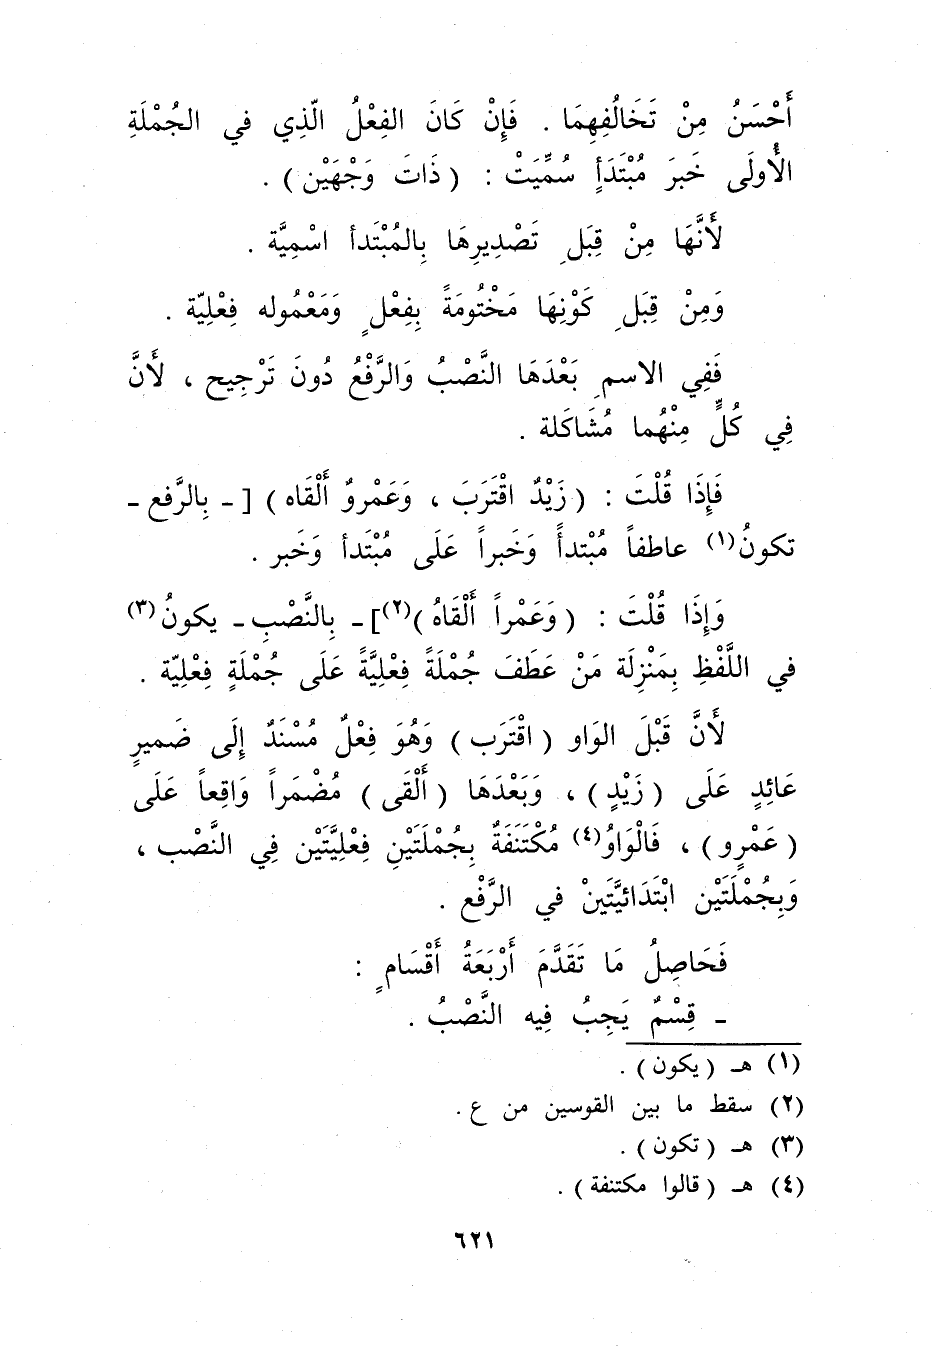 أَحْسَنُ مِنْ تَخَالُفِهِمَا . فَإِنْ كَانَ الفِعْلُ الّذِي في الجُمْلَةِ
الأُولَى خَبرَ مُبْتَدَأٍ سُمِّيَتْ : ( ذَاتَ وَجْهَيْن ) .
لَأَنَّهَا مِنْ قِبَلِ تَصْدِيرِهَا بِالمُبْتَدأ اسْمِيَّة .
وَمِنْ قِبَلِ كَوْنِهَا مَخْتُومَةً بِفِعْلٍ وَمَعْمُوله فِعْلِيّة .
فَفِي الاسمِ بَعْدَهَا النَّصْبُ وَالرَّفْعُ دُونَ تَرْجِيح ، لَأَنَّ
فِي كُلٍّ مِنْهُما مُشَاكَلة .
فَإِذَا قُلْتَ : ( زَيْدٌ اقْتَرَبَ ، وَعَمْروٌ أَلْقَاه ) [ ـ بِالرَّفع ـ
تكونُ(١) عاطفاً مُبْتدأً وَخَبراً عَلَى مُبْتَدأ وَخَبر .
وَإِذَا قُلْتَ : ( وَعَمْراً أَلْقَاهُ )(٢)] ـ بِالنَّصْبِ ـ يكونُ(٣)
في اللَّفْظِ بِمَنْزِلَة مَنْ عَطَفَ جُمْلَةً فِعْلِيَّةً عَلَى جُمْلَةٍ فِعْلِيّة .
لَأَنَّ قَبْلَ الوَاو ( اقْتَرَب ) وَهُوَ فِعْلٌ مُسْنَدٌ إِلَى ضَميرٍ
عَائِدٍ عَلَى ( زَيْدٍ ) ، وَبَعْدَهَا ( أَلْقَى ) مُضْمَراً وَاقِعاً عَلَى
( عَمْرٍو ) ، فَالْوَاوُ(٤) مُكْتَنَفَةٌ بِجُمْلَتَيْنِ فِعْلِيَّتَيْن فِي النَّصْب ،
وَبِجُمْلَتَيْن ابْتَدَائيَّتَينْ في الرَّفْع .
فَحَاصِلُ مَا تَقَدَّمَ أَرْبَعَةُ أَقْسَامٍ :
ـ قِسْمٌ يَجِبُ فِيه النَّصْبُ .
(١) هـ ( يكون ) .
(٢) سقط ما بين القوسين من ع .
(٣) هـ ( تكون ) .
(٤) هـ ( قالوا مكتنفة ) .
٦٢١